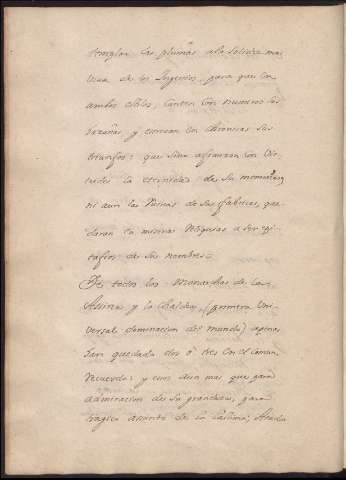 templar las plumas a la solidez ma-
siva de los Ingenios, para que en
ambos stilos, canten con numeros sus
hazañas, y escrivan en Chronicas sus
triunfos: que sino afianzan con Vir-
tudes la eternidad de su memoria,
ni aun las Ruinas de sus fabricas, que-
daran en miseras Reliquias a ser epi-
tafios de sus nombres.
De todos los Monarchas de la
Assiria y la Chaldea, (primera Uni-
versal dominacion del mundo) apenas
han quedado dos o tres en el comun
Recuerdo: y esos aun mas que para
admiracion de su grandeza, para
tragico assunto de la lastima,